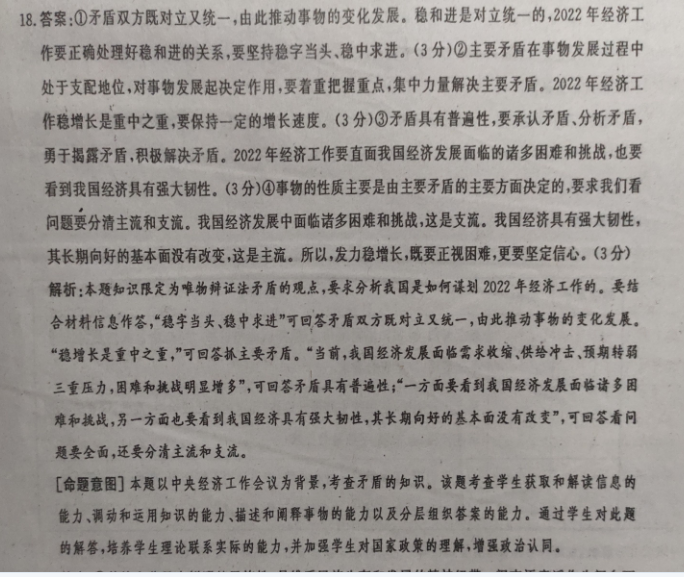 18.答案:①矛盾双方既对立又统一,由此推动事物的变化发展。稳和进是对立统一的,2022年经济工
作要正确处理好稳和进的关系,要坚持稳字当头、稳中求进。(3分)②主要矛盾在事物发展过程中
处于支配地位,对事物发展起决定作用,要着重把握重点,集中力量解决主要矛盾。2022年经济工
作稳增长是重中之重,要保持一定的增长速度。(3分)③矛盾具有普遍性,要承认矛盾、分析矛盾,
勇于揭露矛盾,积极解决矛盾。2022年经济工作要直面我国经济发展面临的诸多困难和挑战,也要
看到我国经济具有强大韧性。(3分)④事物的性质主要是由主要矛盾的主要方面决定的,要求我们看
问题要分清主流和支流。我国经济发展中面临诸多困难和挑战,这是支流。我国经济具有强大韧性,
其长期向好的基本面没有改变,这是主流。所以,发力稳增长,既要正视困难,更要坚定信心。(3分)
解析:本题知识限定为唯物辩证法矛盾的观点,要求分析我国是如何谋划2022年经济工作的。要结
合材料信息作答,“稳字当头、稳中求进”可回答矛盾双方既对立又统一,由此推动事物的变化发展。
“稳增长是重中之重,”可回答抓主要矛盾。“当前,我国经济发展面临需求收缩、供给冲击、预期转弱
三重压力,困难和挑战明显增多”,可回答矛盾具有普遍性;“一方面要看到我国经济发展面临诸多困
难和挑战,另一方面也要看到我国经济具有强大韧性,其长期向好的基本面没有改变”,可回答看问
题要全面,还要分清主流和支流。
[命题意图]本题以中央经济工作会议为背景,考查矛盾的知识。该题考查学生获取和解读信息的
能力、调动和运用知识的能力、描述和阐释事物的能力以及分层组织答案的能力。通过学生对此题
的解答,培养学生理论联系实际的能力,并加强学生对国家政策的理解,增强政治认同。